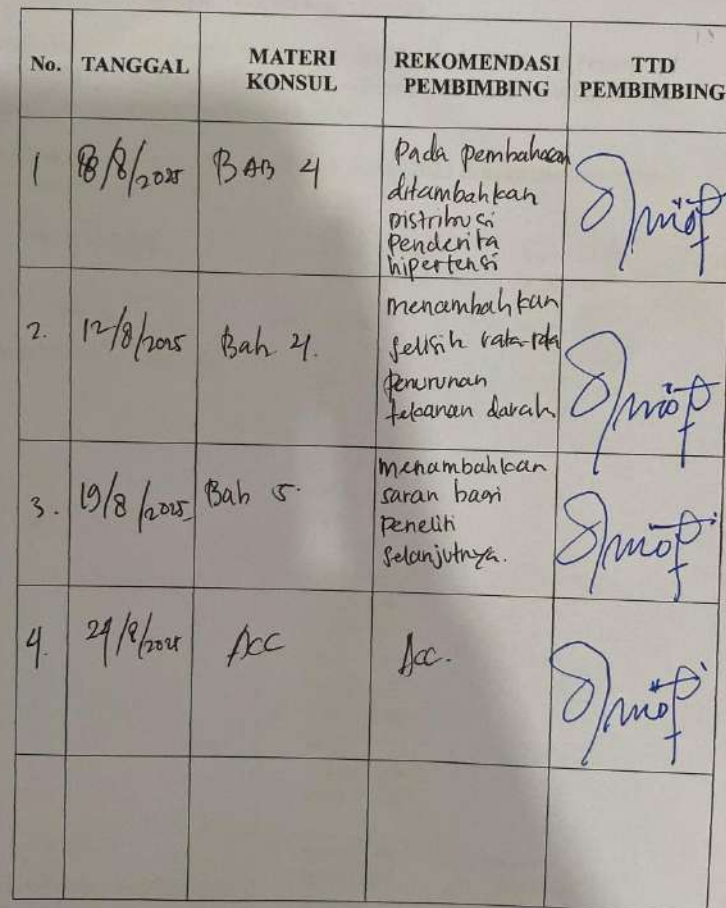 No. TANGGAL MATERI KONSUL REKOMENDASI PEMBIMBING TTD PEMBIMBING
1 8/8/2025 BAB 4 Pada pembahasan
ditambahkan
Distribusi
Penderita
hipertensi
2. 12/8/2025 Bab 4. menambahkan
selisih rata-rata
penurunan
tekanan darah
3. 19/8/2025 Bab 5. menambahkan
saran bagi
Peneliti
selanjutnya.
4. /8/2025 Acc Acc.